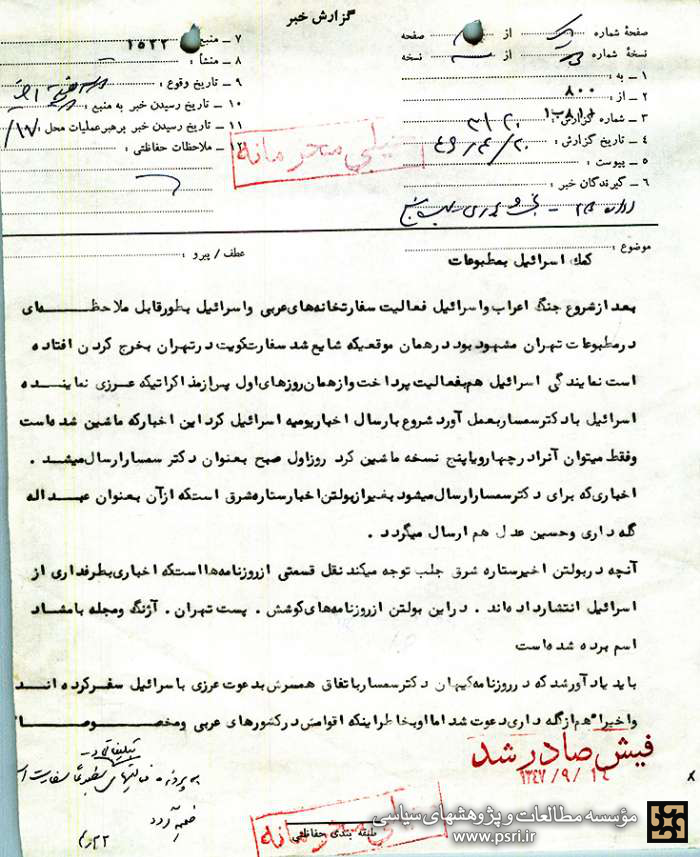 گزارش خبر
صفحهٔ شماره از صفحه
نسخهٔ شماره از نسخه
۱ ـ به :
۲ ـ از : ۸۰۰
۳ ـ شماره گزارش :
۴ ـ تاریخ گزارش : ۴۶/۴/۲۰
۵ ـ پیوست :
۶ ـ گیرندگان خبر :
۷ ـ منبع : ۱۵۲۲
۸ ـ منشأ :
۹ ـ تاریخ وقوع :
۱۰ ـ تاریخ رسیدن خبر به منبع :
۱۱ ـ تاریخ رسیدن خبر برهبر عملیات محل :
۱۲ ـ ملاحظات حفاظتی :
خیلی محرمانه
موضوع : کمک اسرائیل بمطبوعات
عطف / پیرو :
بعد ازشروع جنگ اعراب واسرائیل فعالیت سفارتخانه‌های عربی واسرائیل بطورقابل ملاحظه‌ای
درمطبوعات تهران مشهود بود درهمان موقعیکه شایع شد سفارت کویت درتهران بخرج کردن افتاده
است نمایندگی اسرائیل هم بفعالیت پرداخت وازهمان روزهای اول پس ازمذاکراتیکه عزری نماینده
اسرائیل بادکترسمسار بعمل آورد شروع بارسال اخبار یومیه اسرائیل کرد این اخبارکه ماشین شده است
وفقط میتوان آنرا درچهار ویا پنج نسخه ماشین کرد روز اول صبح بعنوان دکتر سمسار ارسال میشد .
اخباری که برای دکترسمسار ارسال میشود بغیر ازبولتن اخبارستاره شرق است که ازآن بعنوان عبداله
گله داری وحسین عدل هم ارسال میگردد .
آنچه دربولتن اخیرستاره شرق جلب توجه میکند نقل قسمتی ازروزنامه‌ها است که اخباری بطرفداری از
اسرائیل انتشارداده‌اند . دراین بولتن ازروزنامه‌های کوشش . پست تهران . آژنگ ومجله بامشاد
اسم برده شده است
باید یادآورشد که درروزنامه کیهان دکترسمسار باتفاق همسرش بدعوت عزری باسرائیل سفرکرده اند
واخیرا" هم ازگله داری دعوت شد اما اوبخاطراینکه اقوامش درکشورهای عربی ومخصوصا"
فیش صادر شد
۱۳۴۷/۹/۱۴
طبقه بندی حفاظتی
خیلی محرمانه
مؤسسه مطالعات و پژوهشهای سیاسی
www.psri.ir